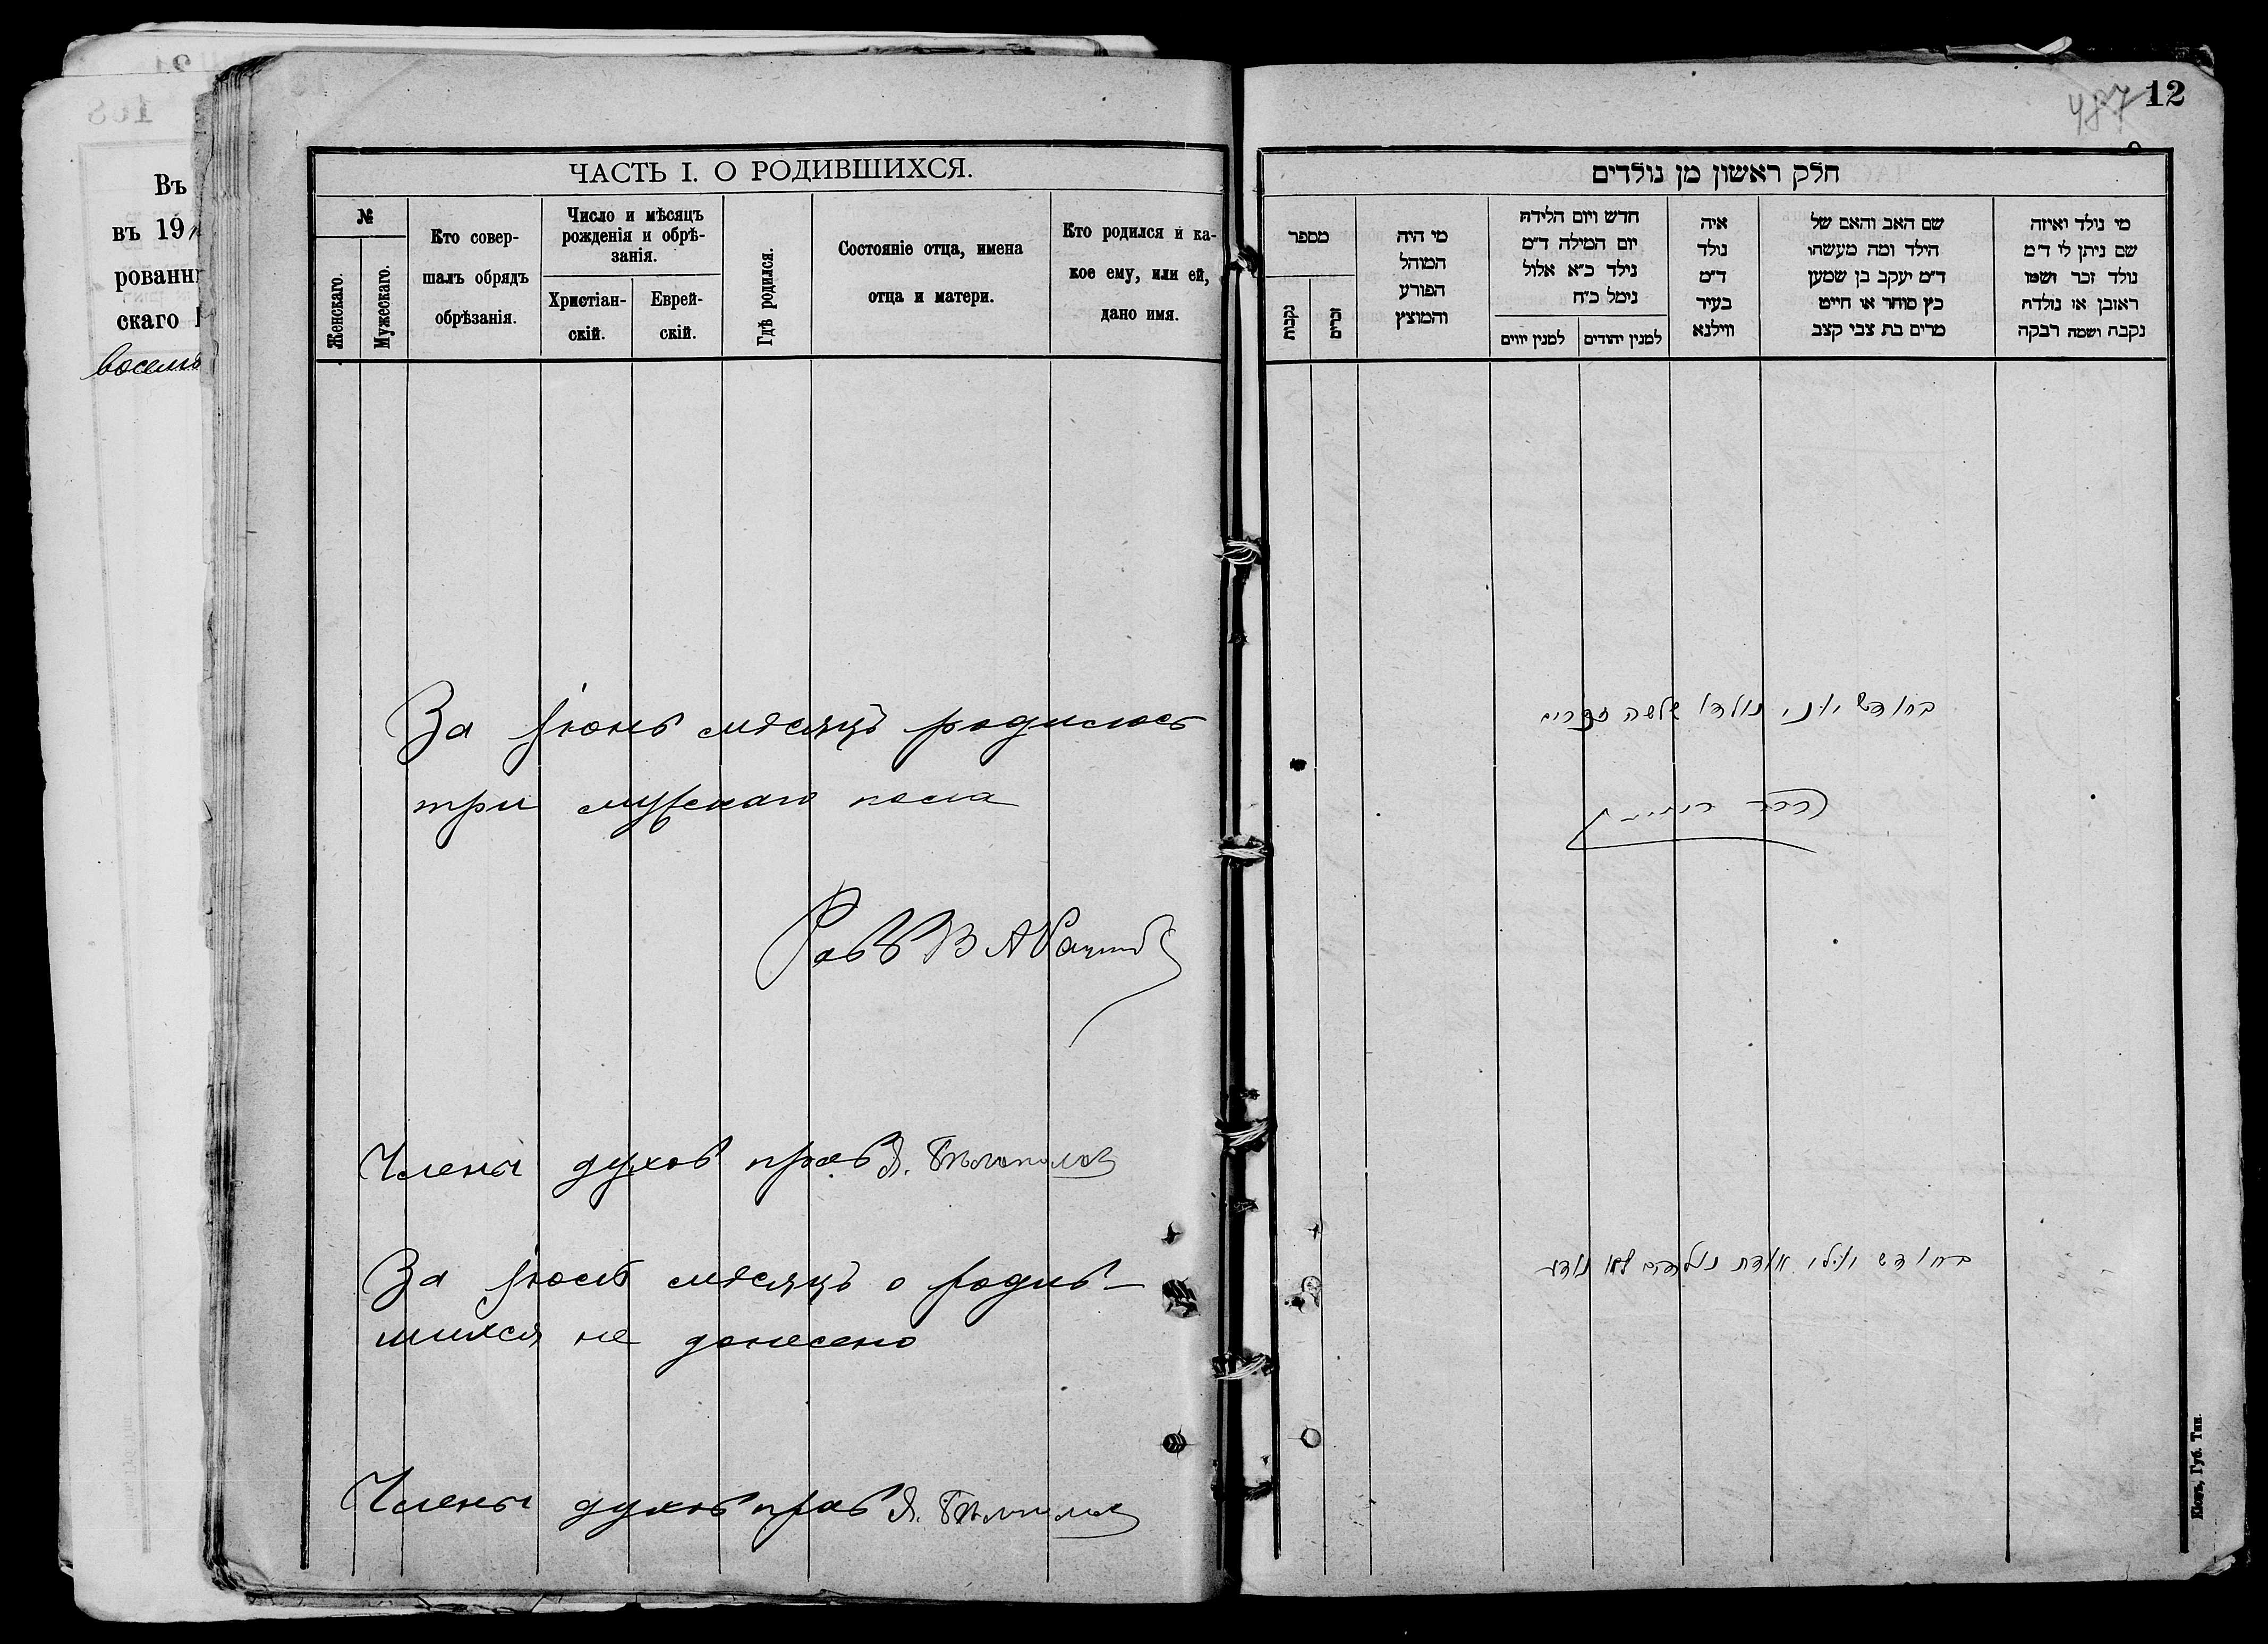 Въ
въ 19
рованн
скаго
ЧАСТЬ I. О РОДИВШИХСЯ.
№
Женскаго.
Мужескаго.
Кто совер-
шалъ обрядъ
обрѣзанія.
Число и мѣсяцъ
рожденія и обрѣ-
занія.
Христіан-
скій.
Еврей-
скій.
Гдѣ родился.
Состояніе отца, имена
отца и матери.
Кто родился и ка-
кое ему, или ей,
дано имя.
За Іюнь мѣсяцъ родилось
три мужскаго пола
Члены духов прав
За Іюль мѣсяцъ о родив-
шихся не донесено
Члены духов прав
487
12
חלק ראשון מן נולדים
מספר
נקבות
זכרים
מי היה
המוהל
הפורע
והמוצץ
חדש ויום הלידה
יום המילה ד״מ
נילד כ״א אלול
נימל כ״ח
למנין יווים
למנין יהודים
איה
נולד
ד״מ
בעיר
ווילנא
שם האב והאם של
הילד ומה מעשהו
ד״מ יעקב בן שמען
כץ סוחר או חייט
מרים בת צבי קצב
מי נולד ואיזה
שם ניתן לו ד״מ
נולד זכר ושמו
ראובן או נולדה
נקבה ושמה רבקה
בחודש יוני נולדו שלשה זכרים
בחודש יולי אודת נולדים לא נודע
Кіевъ, Губ. Тип.